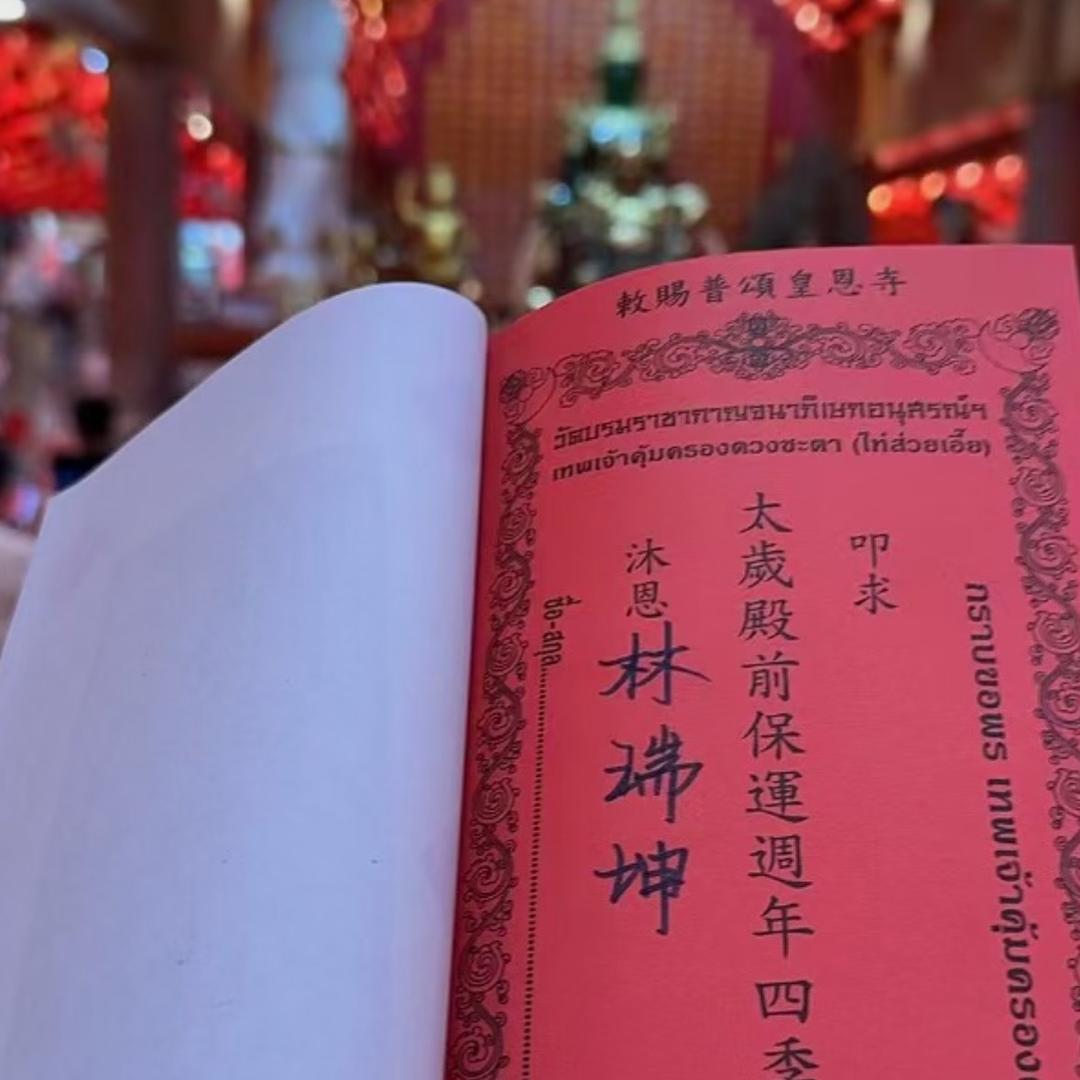 敕賜普頌皇恩寺
วัดบรมราชากาญจนาภิเษกอนุสรณ์ฯ
เทพเจ้าคุ้มครองดวงชะตา (ไท้ส่วยเอี๊ย)
กราบขอพร เทพเจ้าคุ้มครอง
叩求
太歲殿前保運週年四季
沐恩林瑞坤
ชื่อ-สกุล